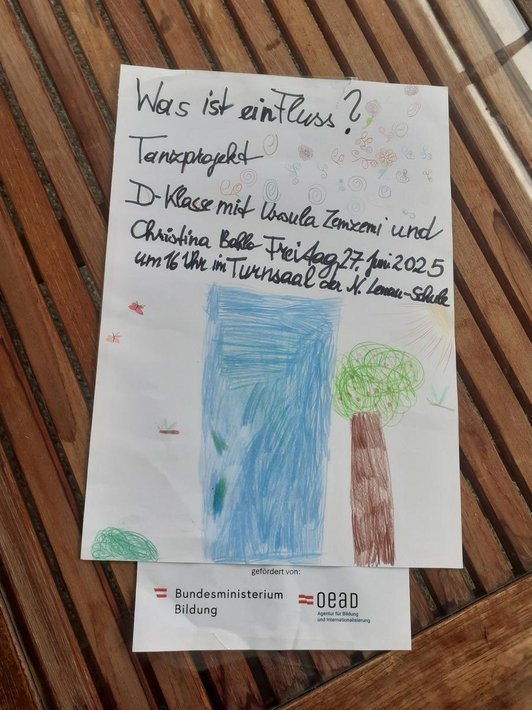 Was ist einFluss?
Tanzprojekt
D-Klasse mit Ursula Zemzemi und
Christina Freitag 27. Juni 2025
um 16 Uhr im Turnsaal der N. Lenau-Schule
gefördert von:
Bundesministerium
Bildung
oead
Agentur für Bildung
und Internationalisierung